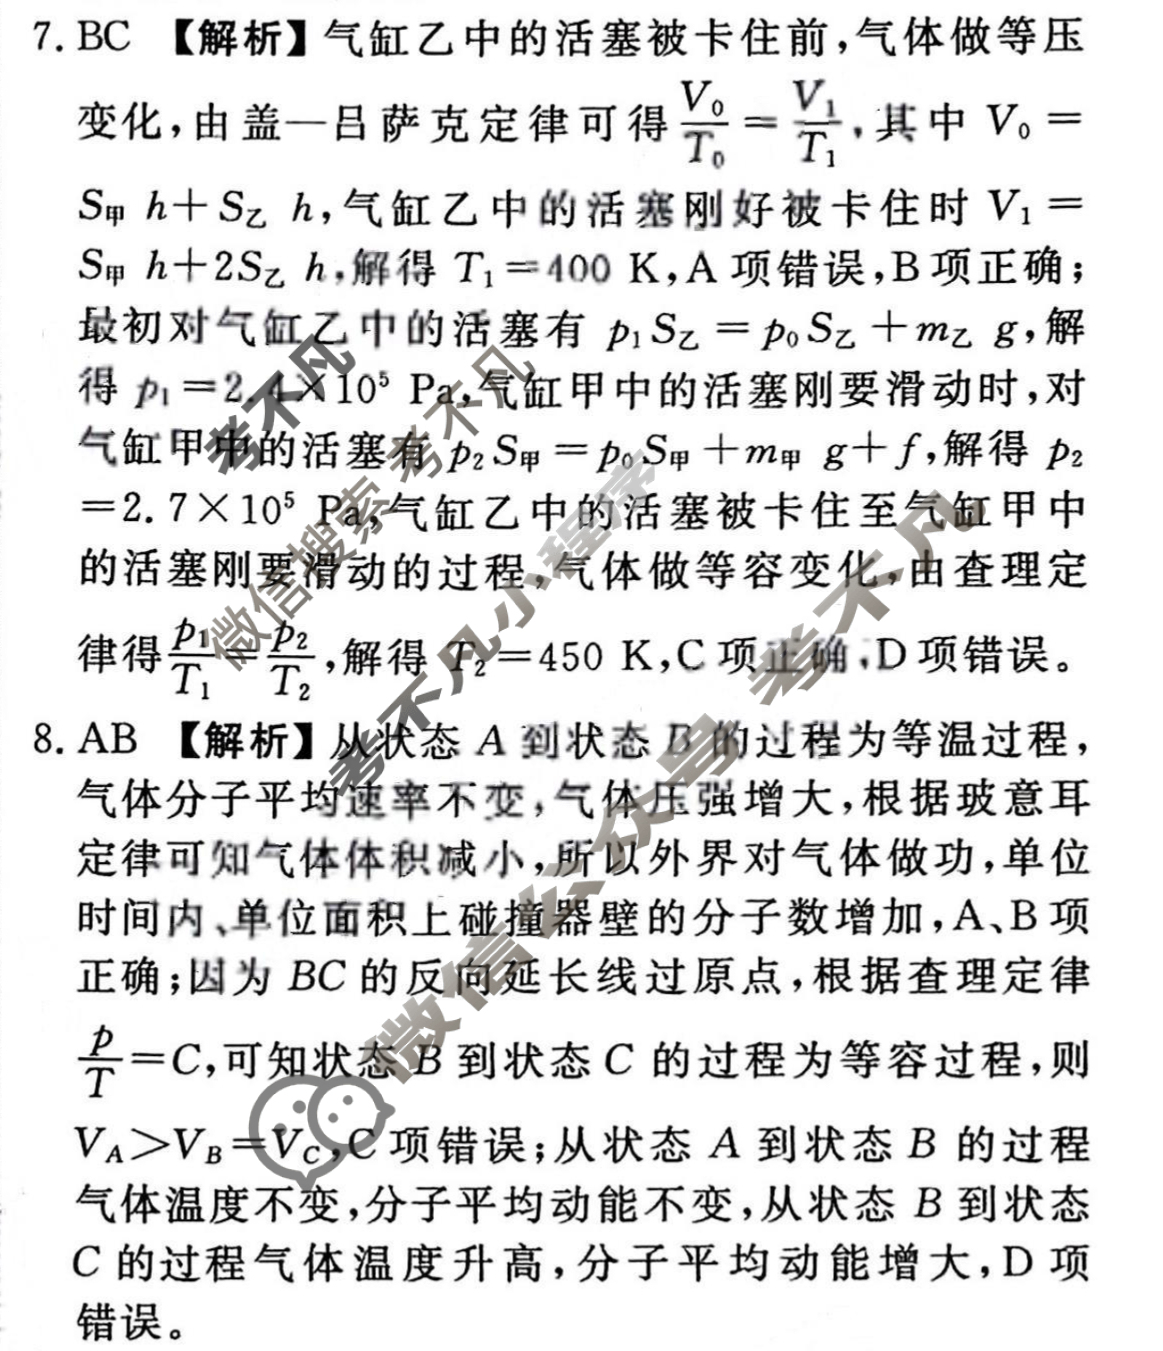 7. BC 【解析】气缸乙中的活塞被卡住前,气体做等压
变化,由盖—吕萨克定律可得V₀/T₀=V₁/T₁,其中 V₀=
S甲 h+S乙 h,气缸乙中的活塞刚好被卡住时 V₁=
S甲 h+2S乙 h,解得 T₁=400 K,A 项错误,B 项正确;
最初对气缸乙中的活塞有 p₁S乙=p₀S乙+m乙 g,解
得 p₁=2.4×10⁵ Pa,气缸甲中的活塞刚要滑动时,对
气缸甲中的活塞有 p₂S甲=p₀S甲+m甲 g+f,解得 p₂
=2.7×10⁵ Pa,气缸乙中的活塞被卡住至气缸甲中
的活塞刚要滑动的过程,气体做等容变化,由查理定
律得p₁/T₁=p₂/T₂,解得 T₂=450 K,C 项正确,D 项错误。
8. AB 【解析】从状态 A 到状态 B 的过程为等温过程,
气体分子平均速率不变,气体压强增大,根据玻意耳
定律可知气体体积减小,所以外界对气体做功,单位
时间内、单位面积上碰撞器壁的分子数增加,A、B 项
正确;因为 BC 的反向延长线过原点,根据查理定律
p/T=C,可知状态 B 到状态 C 的过程为等容过程,则
V_A>V_B=V_C,C 项错误;从状态 A 到状态 B 的过程
气体温度不变,分子平均动能不变,从状态 B 到状态
C 的过程气体温度升高,分子平均动能增大,D 项
错误。
考不凡
微信搜索 考不凡
考不凡小程序
微信公众号 考不凡